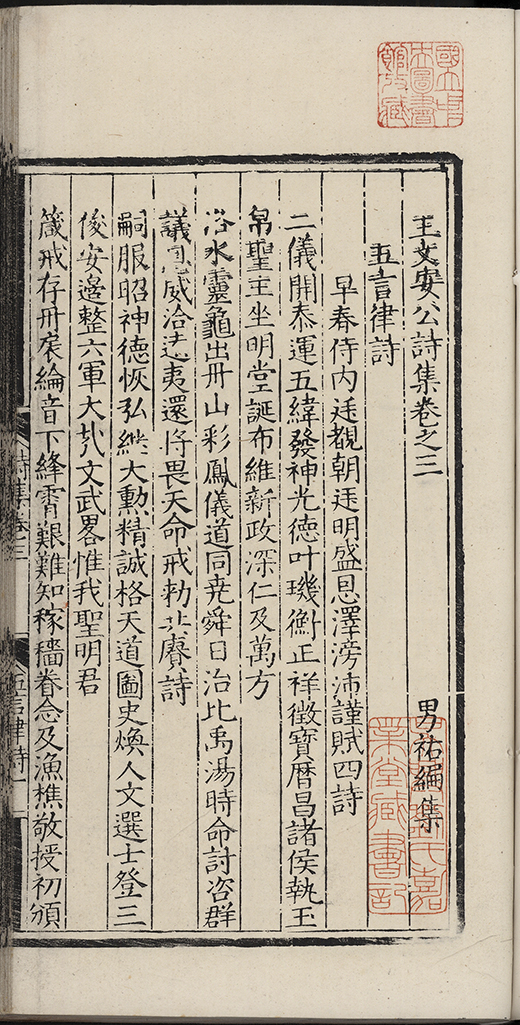 王文安公詩集卷之三
男祐編集
五言律詩
早春侍內廷覩朝廷明盛恩澤滂沛謹賦四詩
二儀開泰運五緯發神光德叶璣衡正祥徵寶曆昌諸侯執玉
帛聖王坐明堂誕布維新政深仁及萬方
洛水靈龜出丹山彩鳳儀道同堯舜日治比禹湯時命討咨群
議恩威洽遠夷還將畏天命戒勑北賡詩
嗣服昭神德恢弘繼大勳精誠格天道圖史煥人文選士登三
俊安邊整六軍大哉文武畧惟我聖明君
箴戒存丹扆綸音下絳霄艱難知稼穡眷念及漁樵敬授初頒
詩集卷三
五言律詩 一
國立中
央圖書
館收藏